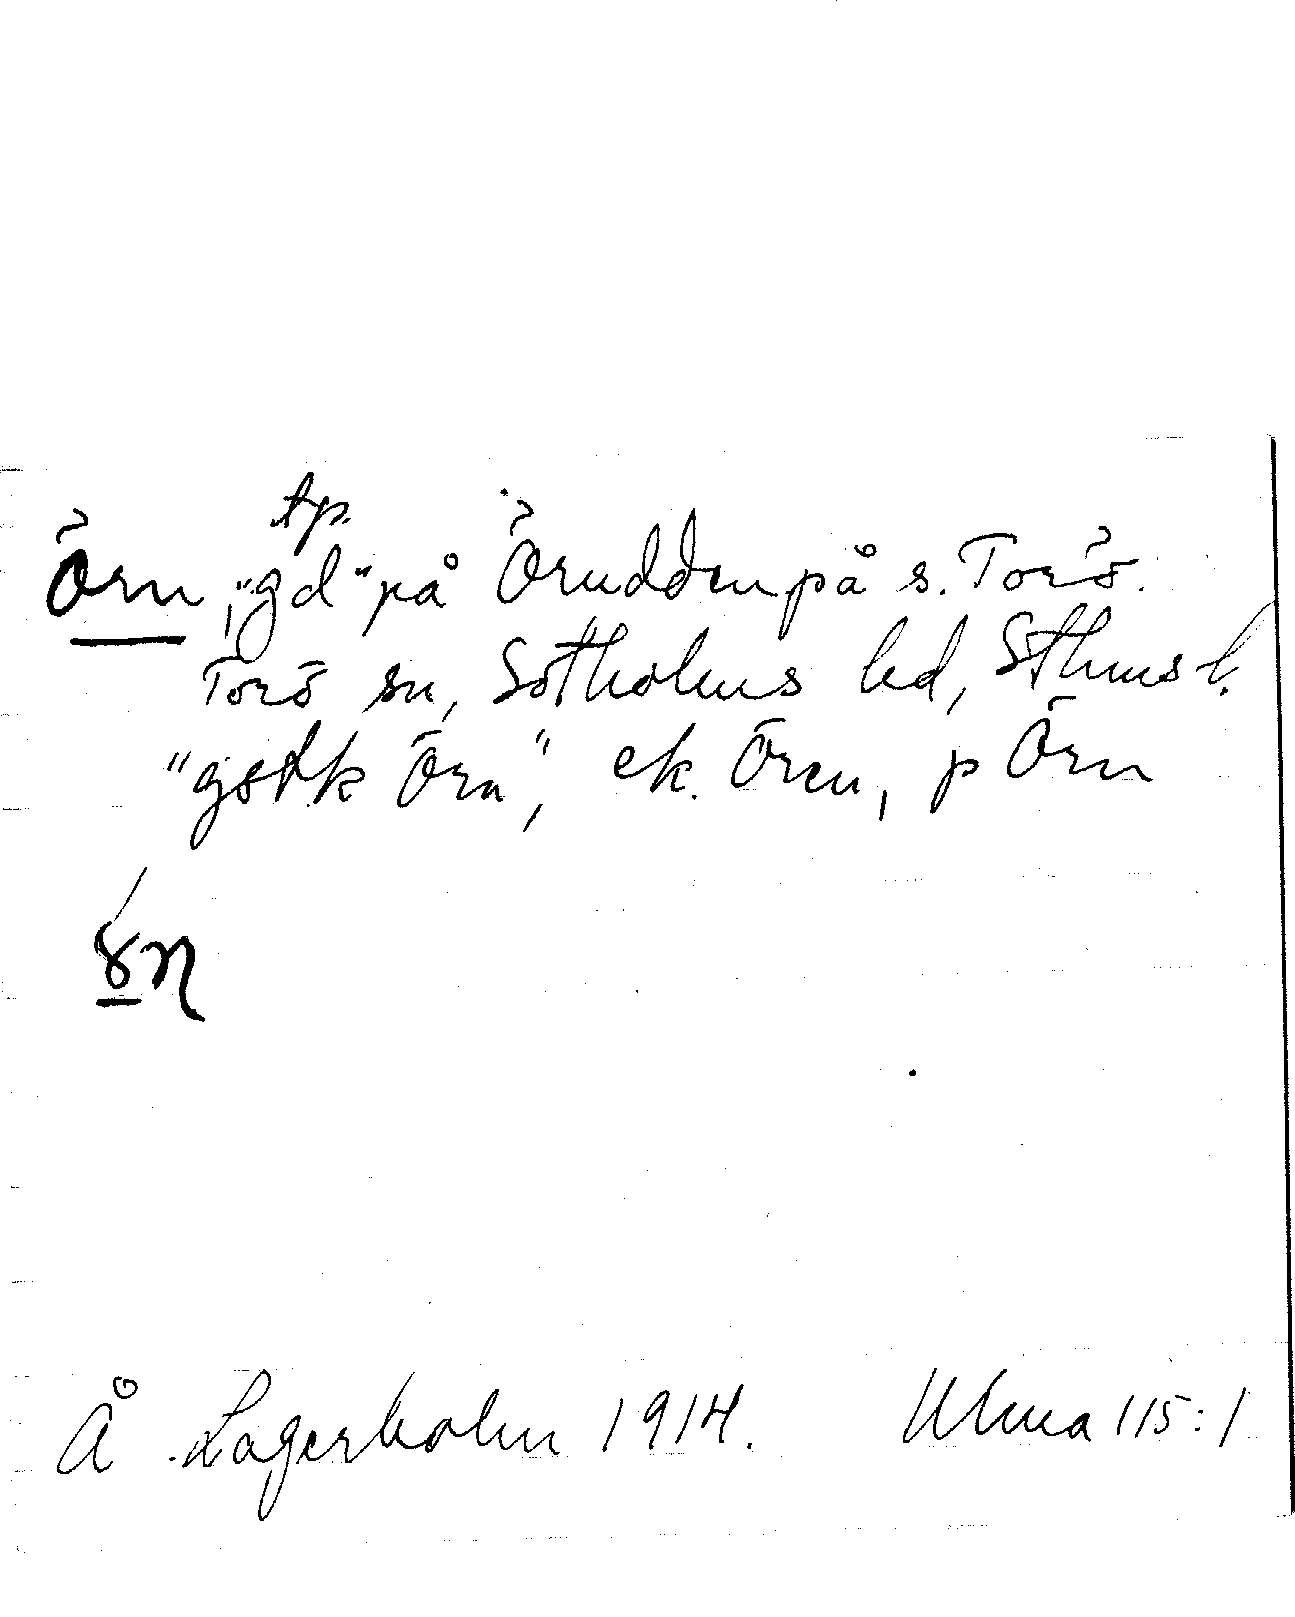 tp.
Örn, "gd" på Örudden på s. Torö.
Torö sn, Sotholms hd, Sthms l.
"gstk Örn", ek. Ören, p Örn
Å. Lagerholm 1914. Ulma 115:1